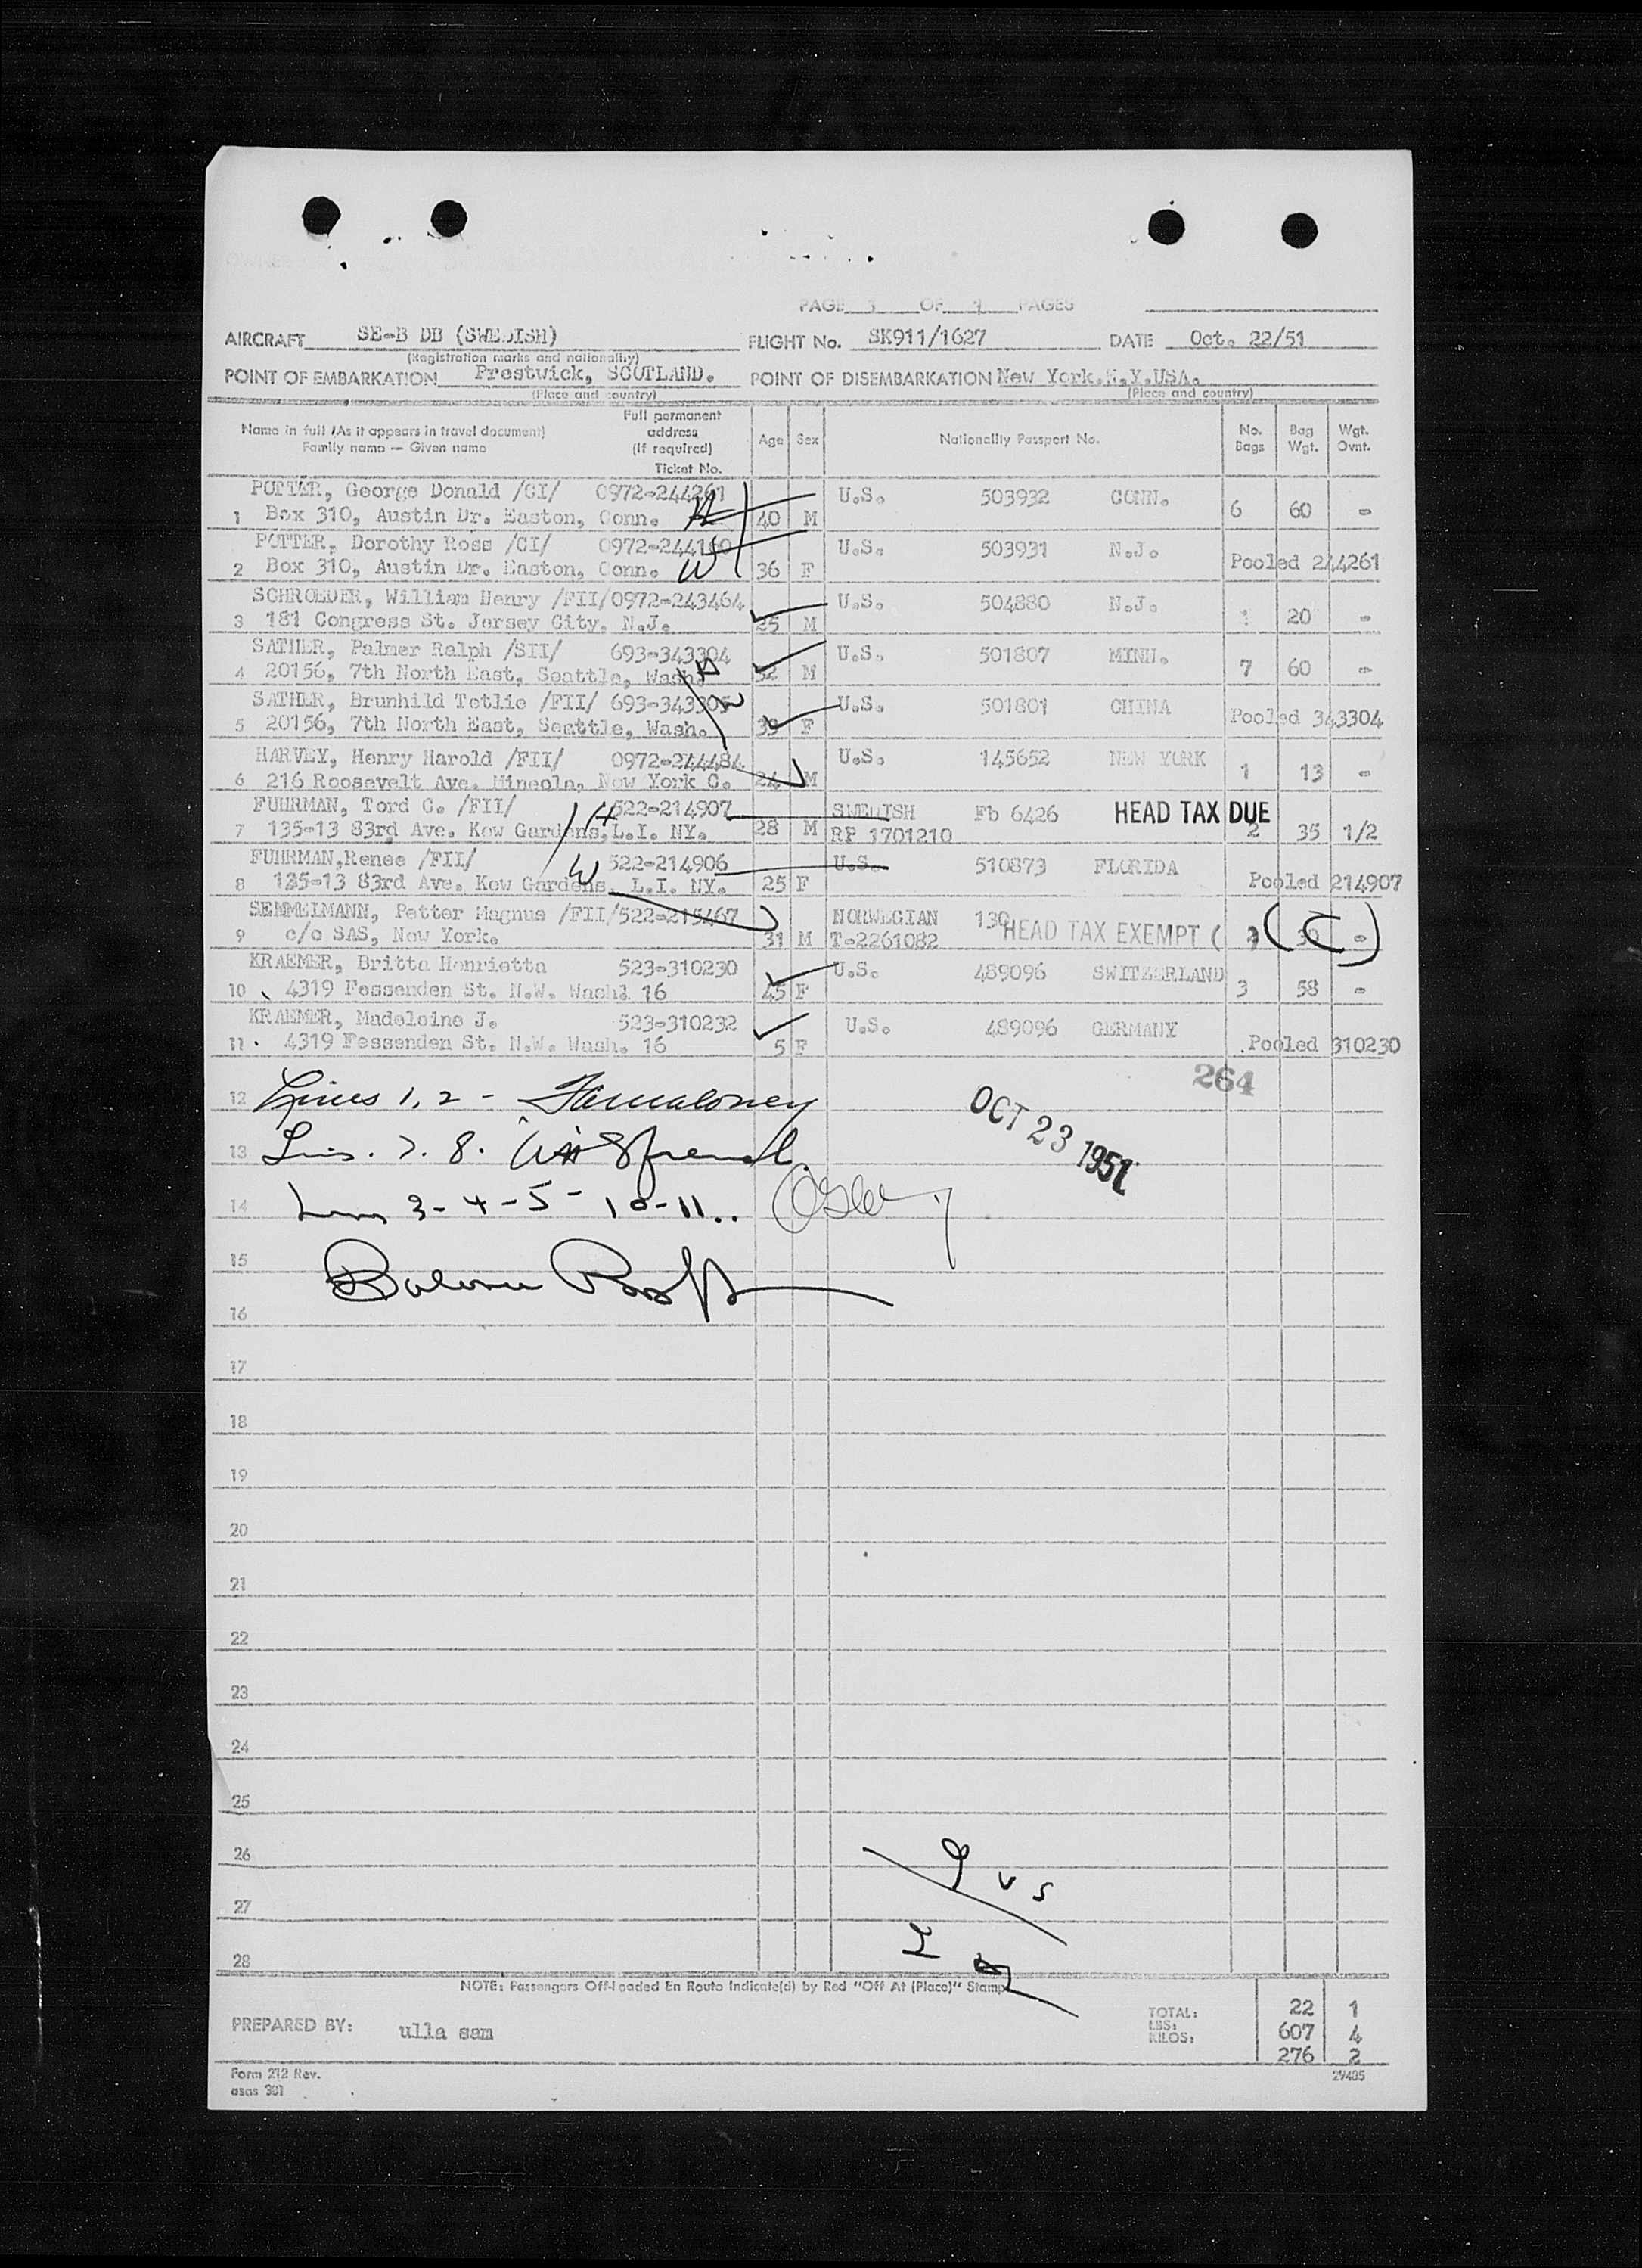 PAGE 1 OF 1 PAGES
AIRCRAFT SE-B DB (SWEDISH) FLIGHT No. SK911/1627 DATE Oct. 22/51
(Registration marks and nationality)
POINT OF EMBARKATION Prestwick, SCOTLAND. POINT OF DISEMBARKATION New York.N.Y.USA.
(Place and country) (Place and country)
Name in full (As it appears in travel document) Family name — Given name Full permanent address (If required) Ticket No. Age Sex Nationality Passport No. No. Bags Bag Wgt. Wgt. Ovnt.
POTTER, George Donald /CI/ 0972-244261 U.S. 503932 CONN.
1 Box 310, Austin Dr. Easton, Conn. H 40 M 6 60 -
POTTER, Dorothy Ross /CI/ 0972-244160 U.S. 503931 N.J.
2 Box 310, Austin Dr. Easton, Conn. W 36 F Pooled 244261
SCHROEDER, William Henry /FII/0972-243464 U.S. 504880 N.J.
3 181 Congress St. Jersey City, N.J. 25 M 1 20 -
SATHER, Palmer Ralph /SII/ 693-343304 U.S. 501807 MINN.
4 20156, 7th North East, Seattle, Wash. H M 7 60 -
SATHER, Brunhild Tetlie /FII/ 693-343305 U.S. 501801 CHINA
5 20156, 7th North East, Seattle, Wash. W 39 F Pooled 343304
HARVEY, Henry Harold /FII/ 0972-244484 U.S. 145652 NEW YORK
6 216 Roosevelt Ave. Mineola, New York C. 24 M 1 13 -
FUHRMAN, Tord C. /FII/ H 522-214907 SWEDISH Fb 6426 HEAD TAX DUE
7 135-13 83rd Ave. Kew Gardens, L.I. NY. 28 M RP 1701210 2 35 1/2
FUHRMAN,Renee /FII/ W 522-214906 U.S. 510873 FLORIDA
8 135-13 83rd Ave. Kew Gardens, L.I. NY. 25 F Pooled 214907
SEMMELMANN, Petter Magnus /FII/522-215467 NORWEGIAN 130 HEAD TAX EXEMPT (
9 c/o SAS, New York. 31 M T-2261082 30 -
KRAEMER, Britta Henrietta 523-310230 U.S. 489096 SWITZERLAND
10 4319 Fessenden St. N.W. Wash. 16 45 F 3 58 -
KRAEMER, Madeleine J. 523-310232 U.S. 489096 GERMANY
11 4319 Fessenden St. N.W. Wash. 16 5 F Pooled 310230
264
12 Lines 1, 2 -
OCT 23 1951
13 Lines 7. 8.
14 Lines 3-4-5-10-11..
15
Balance
16
17
18
19
20
21
22
23
24
25
26
9 US
27
28
NOTE: Passengers Off-loaded En Route Indicate(d) by Red "Off At (Place)" Stamp
TOTAL: 22 1
PREPARED BY: ulla sam LBS: 607 4
KILOS: 276 2
Form 212 Rev. 29405
asas 381